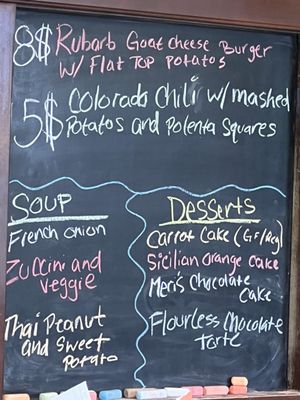 8$ Rubarb Goat Cheese Burger
w/ Flat Top Potatos
5$ Colorado Chili w/ mashed
Potatos and Polenta Squares
Soup
French onion
Zuccini and
Veggie
Thai Peanut
and Sweet
Potato
Desserts
Carrot Cake (GF/Reg)
Sicilian orange Cake
Meri's Chocolate
Cake
Flourless Chocolate
Torte